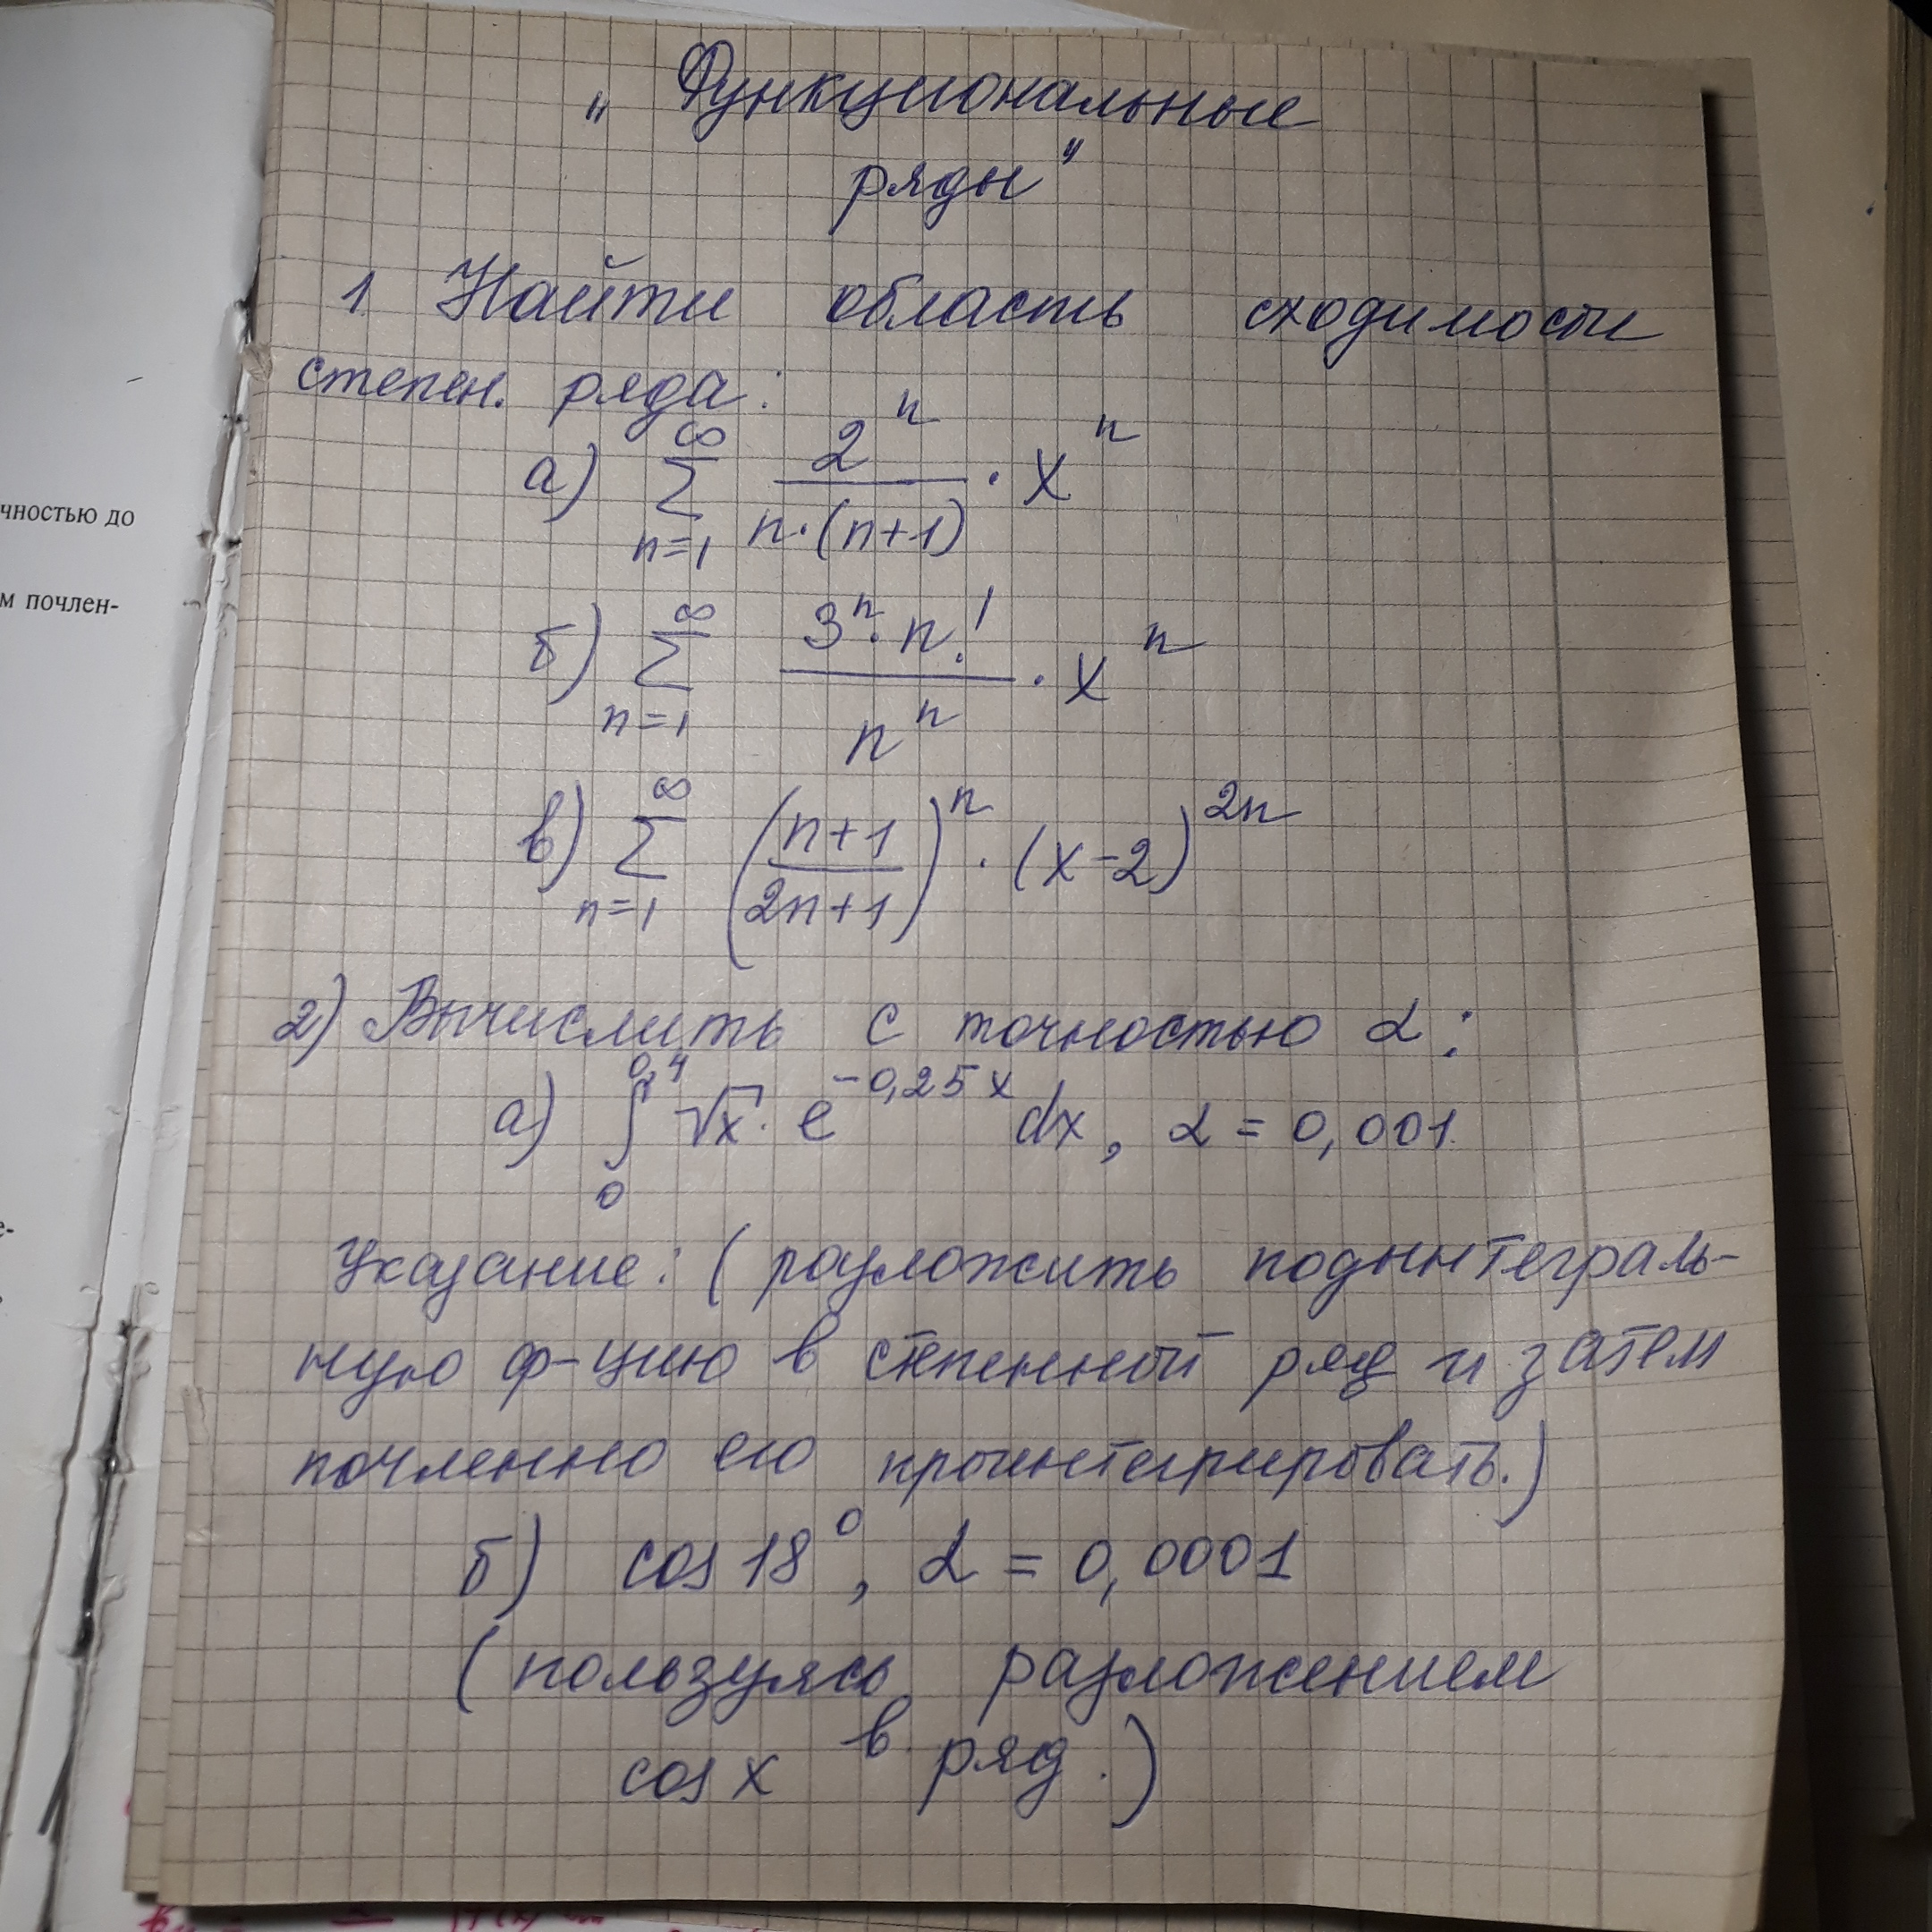 „Функциональные
ряды"
1. Найти область сходимости
степен. ряда:
а) ∑_{n=1}^{∞} 2^n / (n·(n+1)) · x^n
б) ∑_{n=1}^{∞} (3^n · n!) / n^n · x^n
в) ∑_{n=1}^{∞} ((n+1)/(2n+1))^n · (x-2)^{2n}
2) Вычислить с точностью α:
а) ∫_0^{0,4} √x · e^{-0,25x} dx, α = 0,001.
Указание: (разложить подынтеграль-
ную ф-цию в степенной ряд и затем
почленно его проинтегрировать.)
б) cos 18°, α = 0,0001
(пользуясь разложением
cos x в ряд.)
чностью до
м почлен-